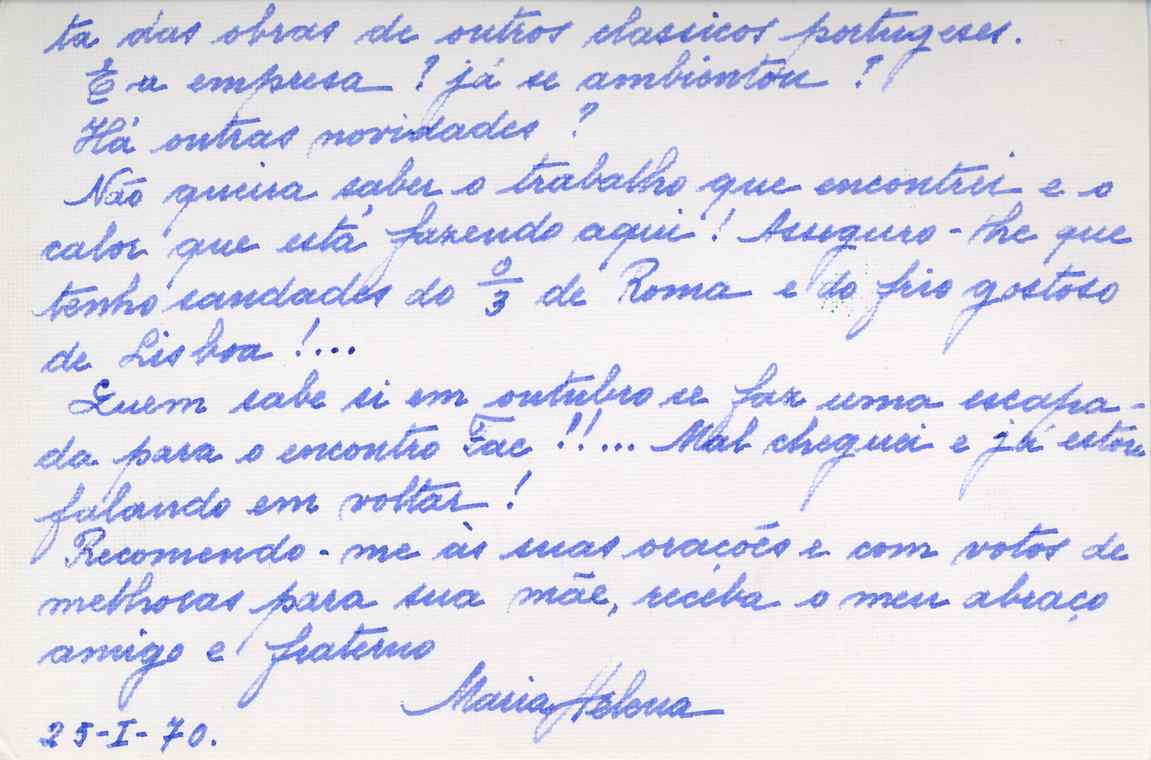 ta das obras de outros classicos portugeses.
E a empresa? já se ambientou?
Há outras novidades?
Não queira saber o trabalho que encontrei e o
calor que está fazendo aqui! Asseguro-lhe que
tenho saudades do de Roma e do frio gostoso
de Lisboa!...
Quem sabe si em outubro se faz uma escapa-
da para o encontro Fac!!... Mal cheguei e já estou
falando em voltar!
Recomendo-me às suas oracões e com votos de
melhoras para sua mãe, receba o meu abraço
amigo e fraterno
Maria Helena
25-I-70.